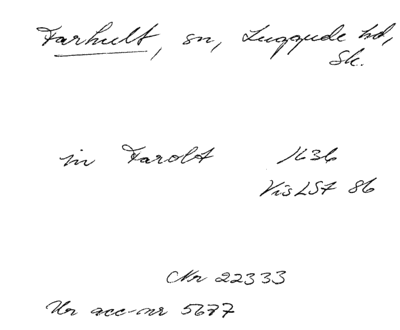 Farhult, sn, Luggude hd,
Sk.
in Farolt 1636
VisLSF 86
Nr 22333
Ur acc-nr 5677